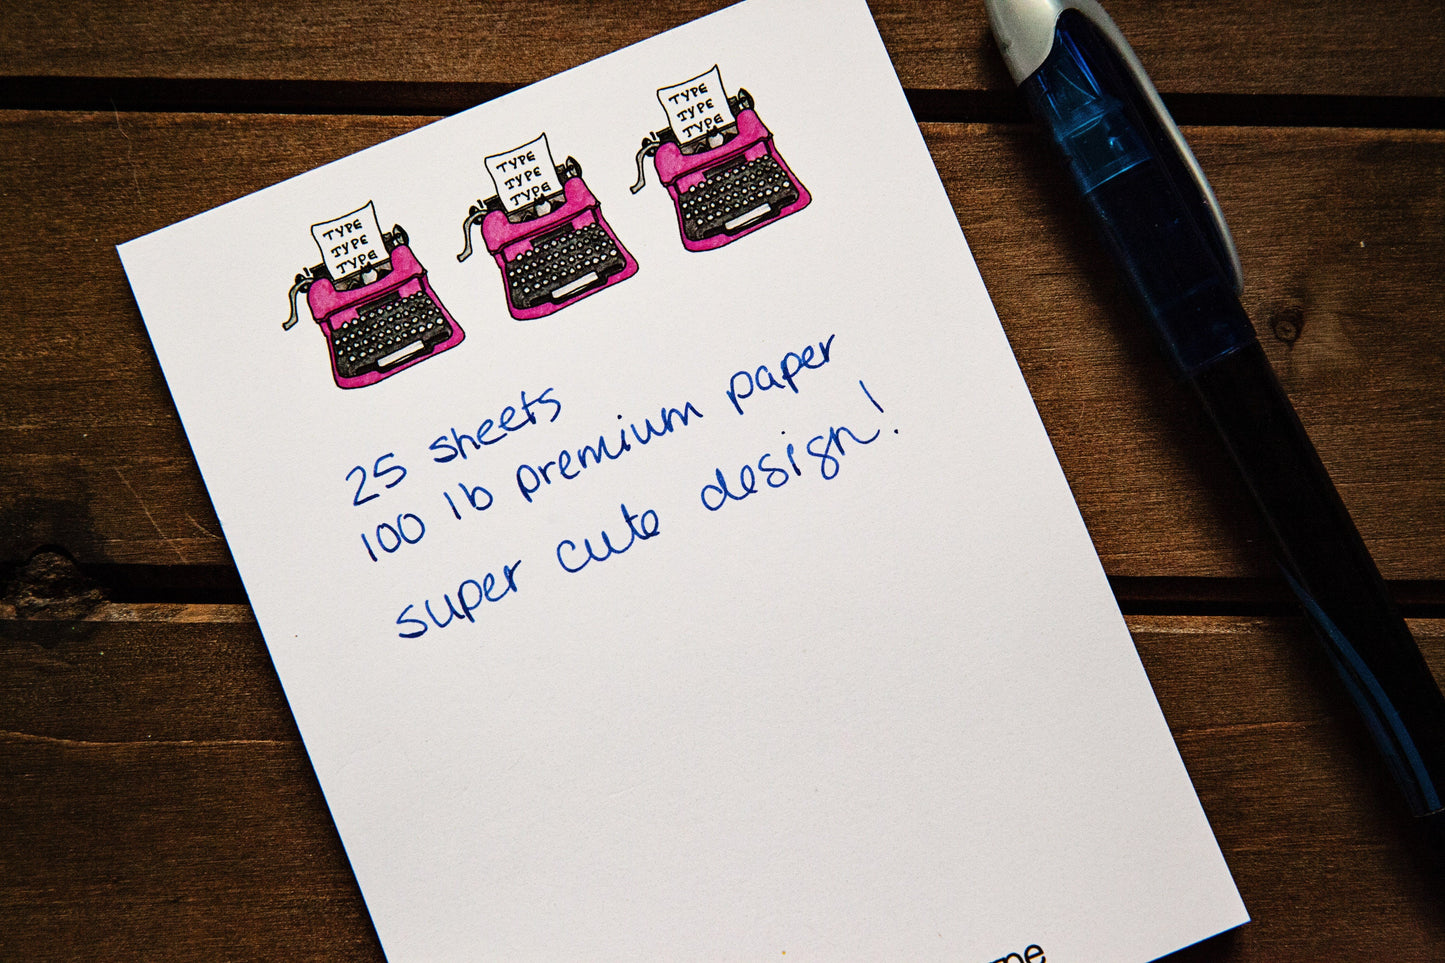 TYPE
TYPE
TYPE
TYPE
TYPE
TYPE
TYPE
TYPE
TYPE
25 sheets
100 lb premium paper
super cute design!